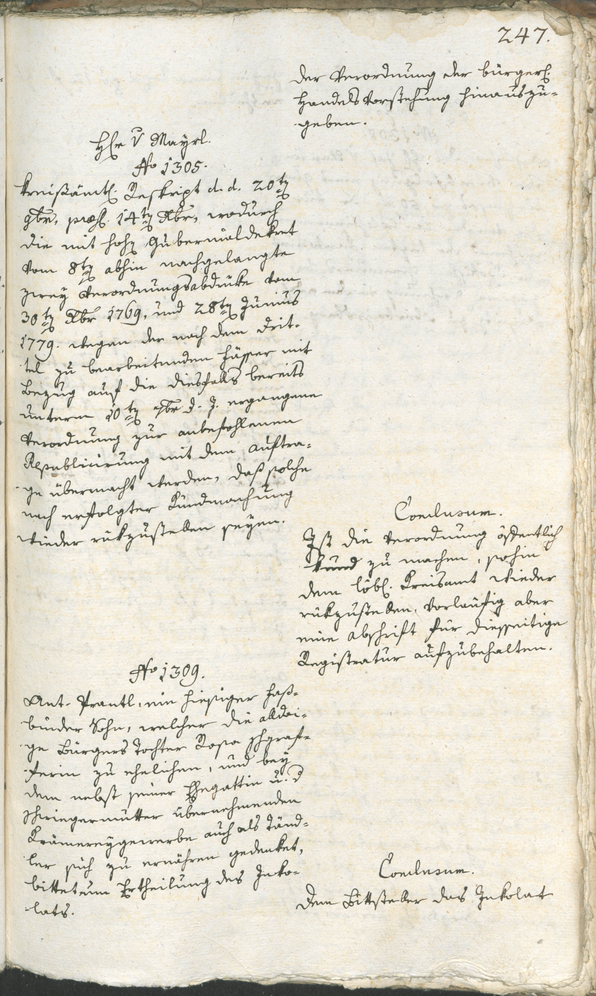 247.
der Verordnung der bürgerl:
Handels Vorstehung hinauszu-
geben.
H. v Mayrl.
No 1305.
Kreisämtl: Reskript d. d. 20t
9br, präs. 14t Xbr, wodurch
die mit hoh. Gubernialdekret
vom 8t abhin nachgelangte
zwey Verordnungsabdrüke vom
30t Xbr 1769, und 28t Junius
1779. wegen der nach dem Drit-
tel zu bearbeitenden Hässer mit
Bezug auf die diesfals bereits
unterm 10t 9br d. J. ergangene
Verordnung zur anbefohlenen
Republicirung mit dem Auftra-
ge übermacht werden, daß solche
nach erfolgter Kundmachung
wieder rükzustellen seyen.
Conclusum.
Ist die Verordnung öffentlich
kund zu machen, sohin
dem löbl. Kreisamt wieder
rükzustellen, vorläufig aber
eine Abschrift für diesseitige
Registratur aufzubehalten.
No 1309.
Ant. Prantl, ein hiesiger Faß-
binder Sohn, welcher die alldoi-
ge Bürgers Tochter Rosa
zu ehelichen, und bey
dem nebst seiner Ehegattin u.
Schwiegermutter übernehmenden
Krämereygewerbe auch als Tänd-
ler sich zu ernähren gedenket,
bittet um Ertheilung des Inko-
lats.
Conclusum.
Dem Bittsteller das Inkolat